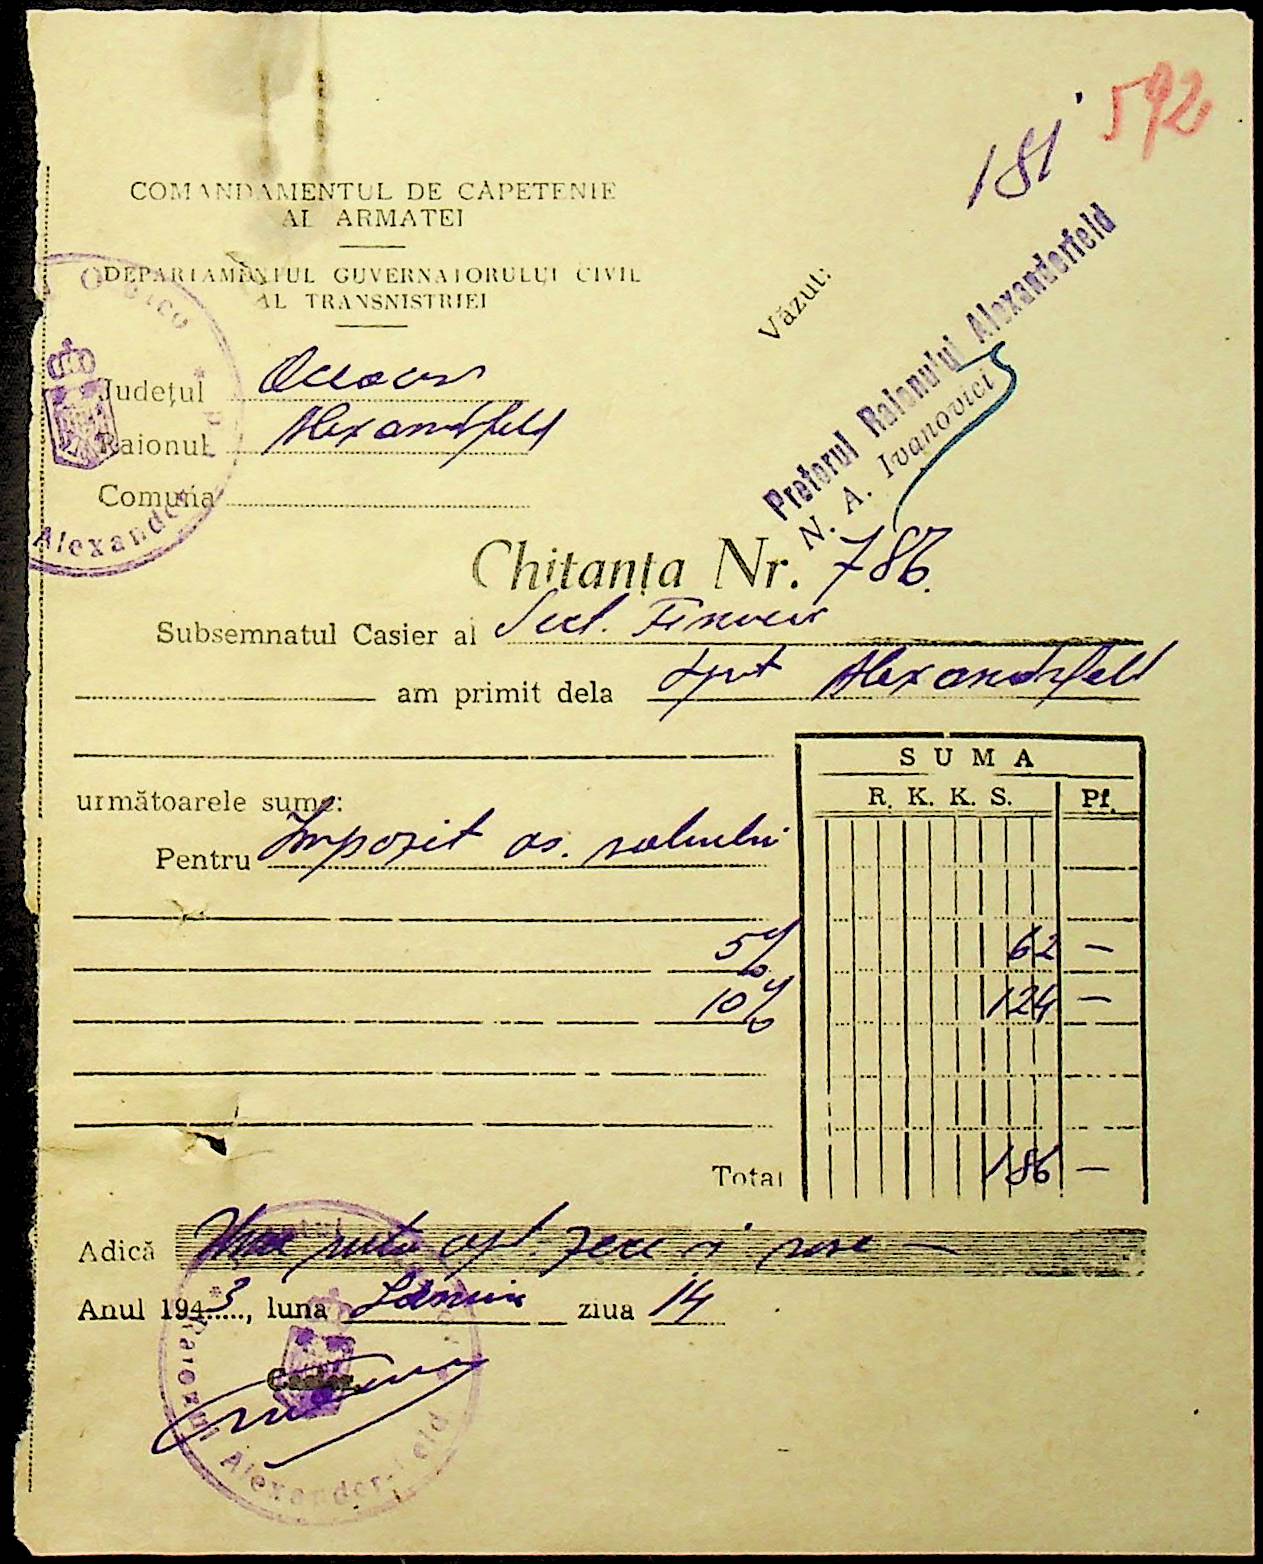 592
181
COMANDAMENTUL DE CĂPETENIE
AL ARMATEI
DEPARTAMENTUL GUVERNATORULUI CIVIL
AL TRANSNISTRIEI
Văzut:
Pretorul Raionului Alexanderfeld
N. A. Ivanovici
Județul Oceacov
Raionul Alexandrfeld
Comuna
Chitanța Nr. 786.
Subsemnatul Casier al Sect. Financiar
am primit dela Alexandrfeld
SUMA
următoarele sume: R. K. K. S. Pf.
Pentru Impozit as. salariului
5% 62 —
10% 124 —
Total 186 —
Adică Una suta opt zece și șase —
Anul 1943, luna Ianuar ziua 14
Casier
Raionul Alexander-Feld